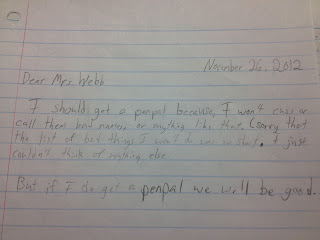 November 26, 2012
Dear Mrs. Webb
I should get a penpal because, I won't cuss or
call them bad names or anything like that, (sorry that
the list of bad things I won't do was so short, I just
couldn't think of anything else.
But if I do get a penpal we will be good.